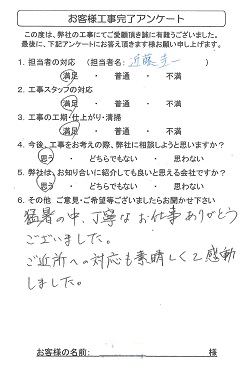 お客様工事完了アンケート
この度は、弊社の工事にてご愛顧頂き誠に有難うございました。
最後に、下記アンケートにお答え頂きます様お願い申し上げます。
1. 担当者の対応 (担当者名: 近藤圭一)
満足 ・ 普通 ・ 不満
2. 工事スタッフの対応
満足 ・ 普通 ・ 不満
3. 工事の工期・仕上がり・清掃
満足 ・ 普通 ・ 不満
4. 今後、工事をお考えの際、弊社に相談しようと思いますか?
思う ・ どちらでもない ・ 思わない
5. 弊社は、お知り合いに紹介しても良いと思える会社ですか?
思う ・ どちらでもない ・ 思わない
6. その他 ご意見・ご希望等ございましたらお聞かせ下さい
猛暑の中、丁寧なお仕事ありがとう
ございました。
ご近所への対応も素晴しくて感動
しました。
お客様の名前: 様